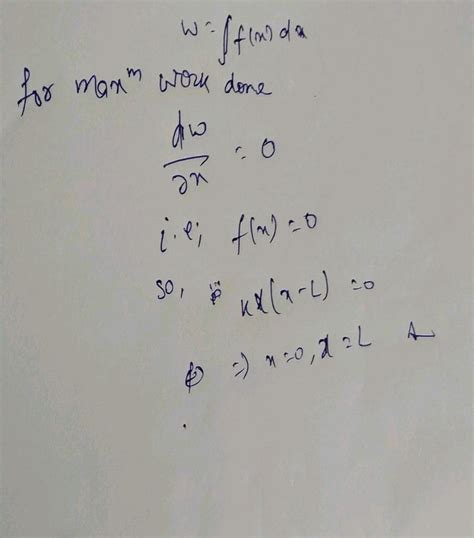 w = ∫f(x) dx
for maxᵐ work done
dw
∂x
= 0
i.e; f(x) = 0
so, kx(x-L) = 0
=) x=0, x=L